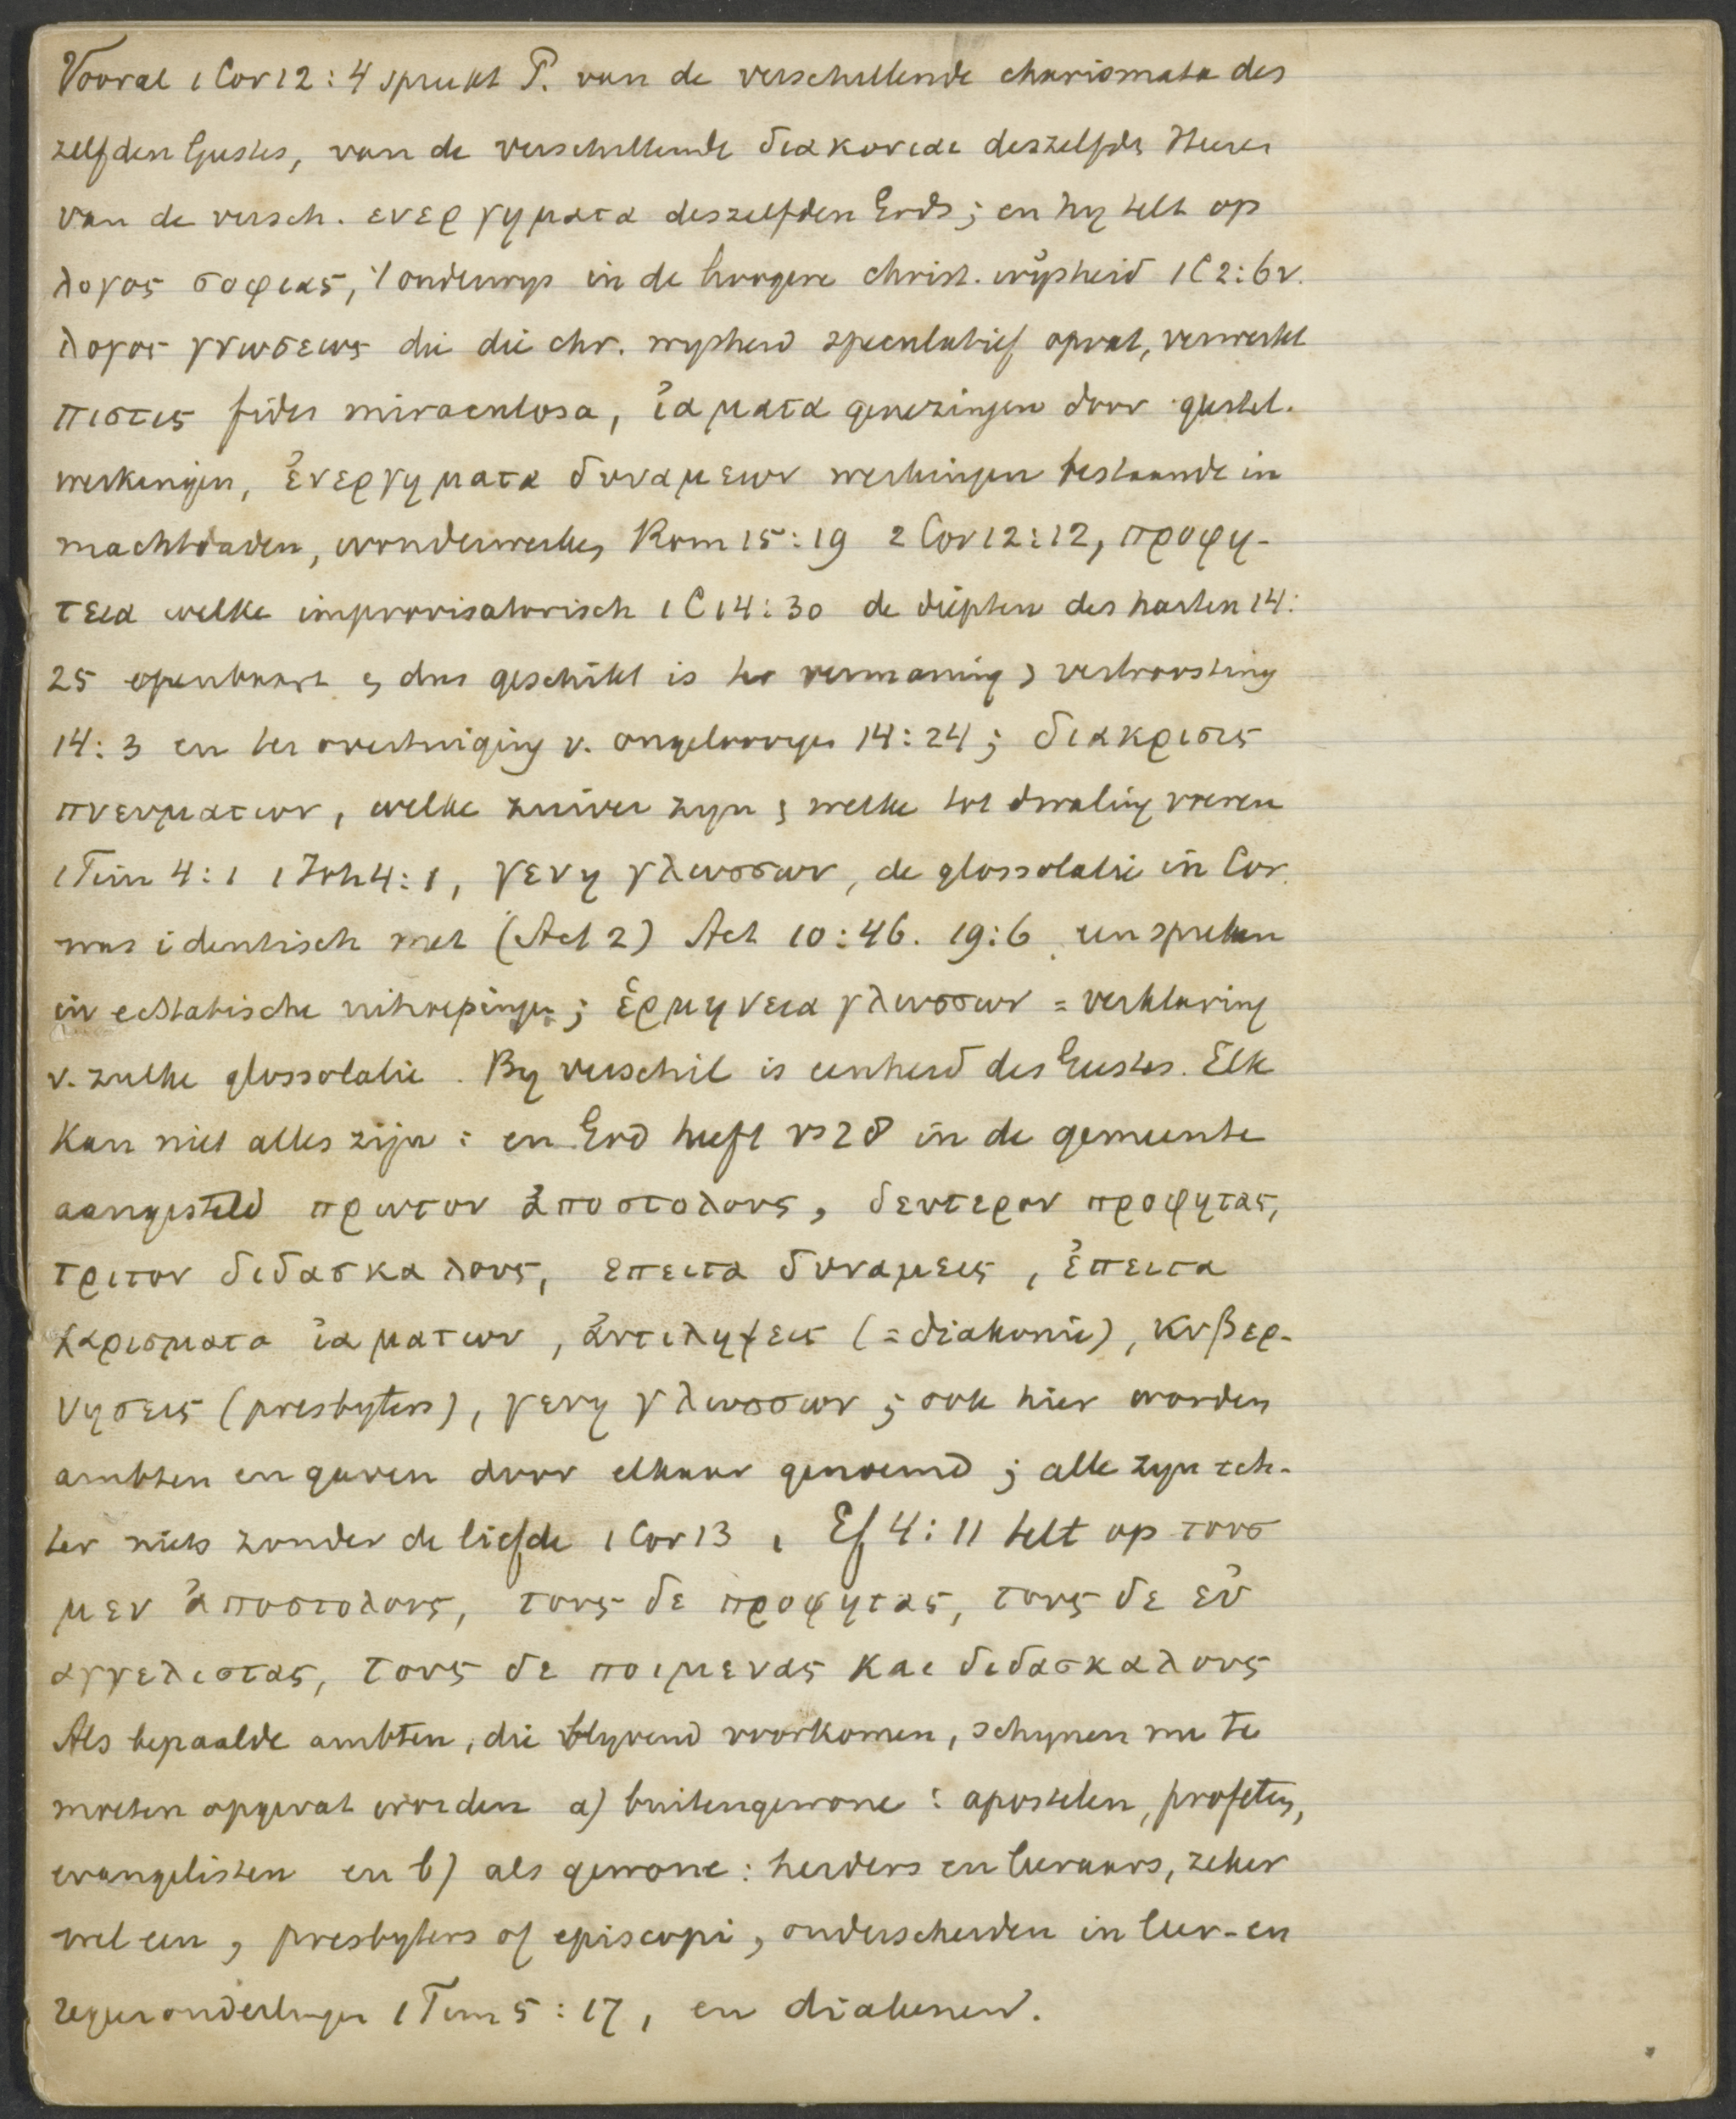 Vooral 1 Cor 12:4 spreekt P. van de verschillende charismata des
zelfden Geestes, van de verschillende διακονιαι deszelfde Heeren
van de versch. ενεργηματα deszelfden Gods; en hy telt op
λογος σοφιας, 't onderwys in de hoogere christ. wijsheid 1 C 2:6v.
λογος γνωσεως die die chr. wysheid speculatief opvat, verwerkt
πιστις fides miraculosa, ἰαματα genezingen door geestel.
werkingen, ἐνεργηματα δυναμεων werkingen bestaande in
machtdaden, wonderwerken Rom 15:19 2 Cor 12:12, προφη-
τεια welke improvisatorisch 1 C 14:30 de diepten des harten 14:
25 openbaart en dus geschikt is ter vermaning en vertroosting
14:3 en ter overtuiging v. ongeloovigen 14:24; διακρισις
πνευματων, welke zuiver zyn en welke tot dwaling voeren
1 Tim 4:1 1 Joh 4:1, γενη γλωσσων, de glossolalie in Cor.
was identisch met (Act 2) Act 10:46. 19:6. een spreken
in ecstatische uitroepingen; ἑρμηνεια γλωσσων = verklaring
v. zulke glossolalie. By verschil is eenheid des Geestes. Elk
kan niet alles zijn: en God heeft vs 28 in de gemeente
aangesteld πρωτον ἀποστολους, δευτερον προφητας,
τριτον διδασκαλους, επειτα δυναμεις, ἐπειτα
χαρισματα ἰαματων, ἀντιληψεις (= diakonie), κυβερ-
νησεις (presbyters), γενη γλωσσων; ook hier worden
ambten en gaven door elkaar genoemd; alle zyn ech-
ter niets zonder de liefde 1 Cor 13, Ef 4:11 telt op τουσ
μεν ἀποστολους, τους δε προφητας, τους δε εὐ
αγγελιστας, τους δε ποιμενας και διδασκαλους
Als bepaalde ambten, die blyvend voorkomen, schynen nu te
moeten opgevat worden a) buitengewone: apostelen, profeten,
evangelisten en b) als gewone: herders en leeraars, zeker
wel een, presbyters of episcopi, onderscheiden in leer-en
regeerouderlingen 1 Tim 5:17, en diakenen.